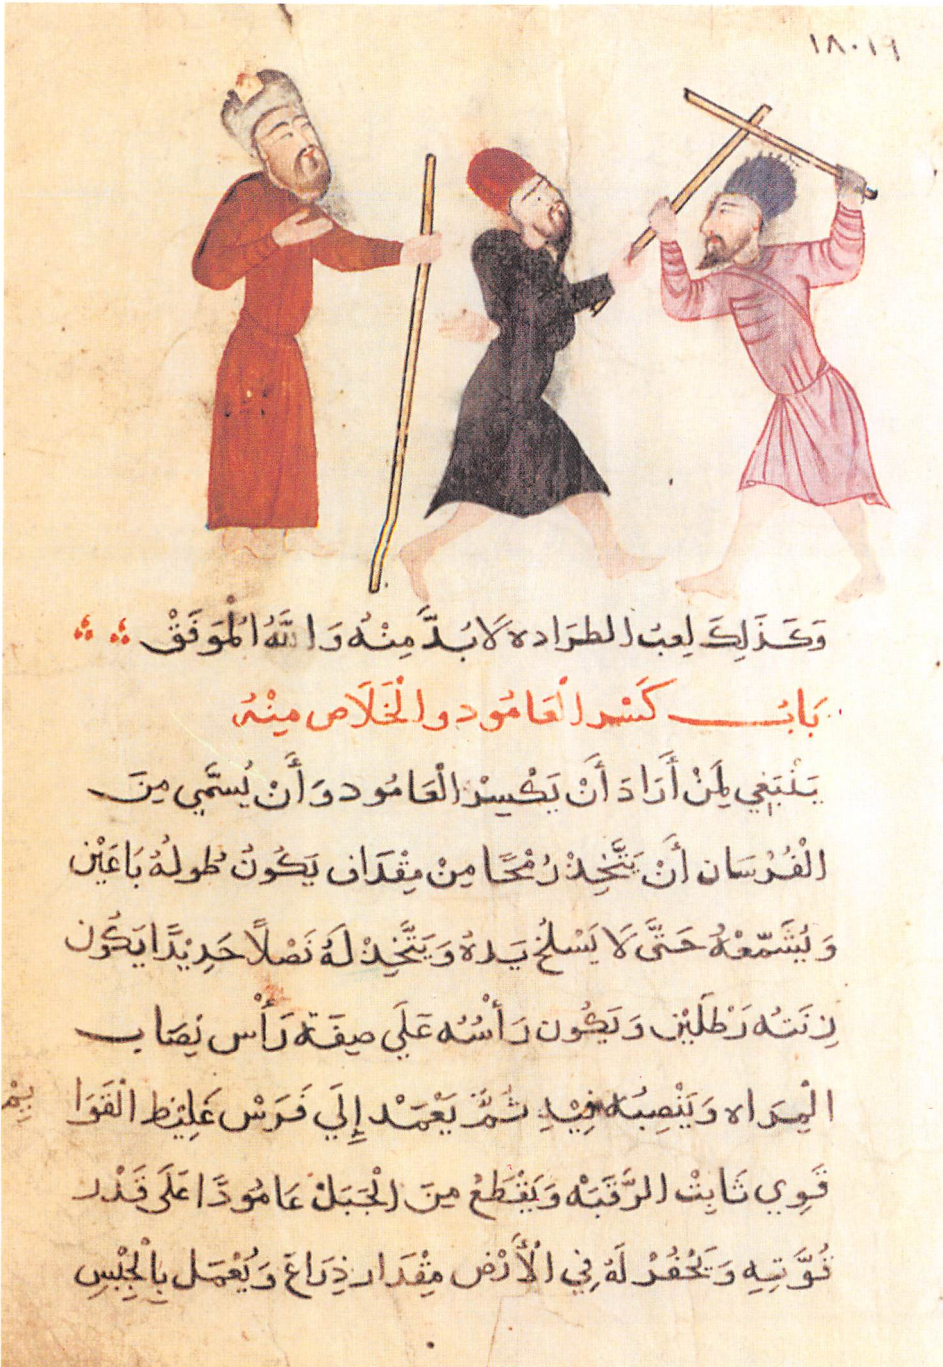 ١٨٠١٩
وَكَذَلِكَ لِعبُ الطرَاده لَا بُدَّ مِنْهُ وَاللَّهُ الْمُوَفَقْ
بَابُ كَسْرِ الْعَامُود وِالْخَلَاص مِنْهُ
يَنْبَغِي لِمَنْ أَرَادَ أَنْ يَكْسِرْ الْعَامُود وَأَنْ يُسَمَّي مِنَ
الْفُرْسَان أَنْ يَتَّخِذْ رُمْحًا مِنْ مِقْدَاف يَكُونُ طُولهُ بَاعَيْن
وَيُشَمّعْهُ حَتَّى لَا يَسْلخُ يَدهُ وَيَتَّخِذْ لَهُ نَصْلًا حَدِيْدًا يَكُون
زِنَتهُ رَطْلَيْن وَيَكُون رَأْسُه عَلَي صِفَة رَأْس نِصَاب
الْمِرَاه وَيَنْصِبُه فِيْهِ ثُمَّ يَعْمَدْ إِلَي فَرَسْ غَلِيْظ الْقَوَا يِمْ
قَوِي ثَابِتْ الرَّقَبَهْ وَيَقْطَعْ مِنَ الْجَبَلْ عَامُودًا عَلَى قَدْر
قُوَّتِهِ وَيَحْفُرْ لَهُ فِي الْأَرْض مِقْدَار ذِرَاعْ وَيُعْمَل بِالْجِبْسِ